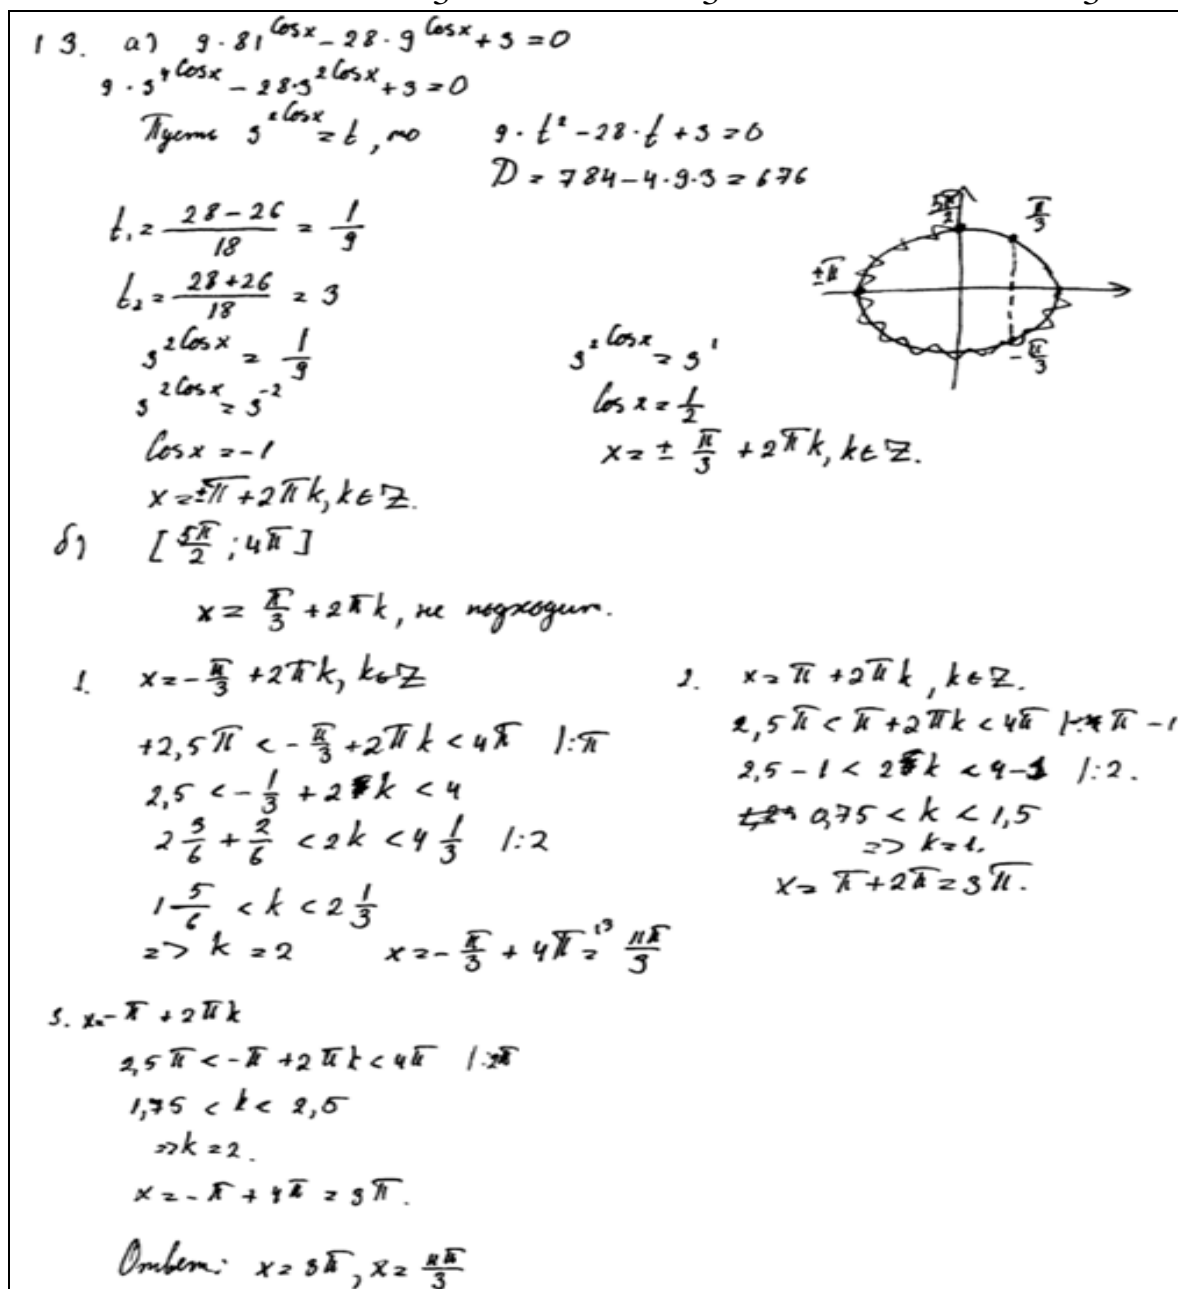 13. а) 9 · 81^cosx − 28 · 9^cosx + 3 = 0
9 · 3^4cosx − 28·3^2cosx + 3 = 0
Пусть 3^2cosx = t, то 9 · t² − 28 · t + 3 = 0
D = 784 − 4·9·3 = 676
t₁ = (28 − 26)/18 = 1/9
t₂ = (28 + 26)/18 = 3
5π/2
π/3
±π
−π/3
3^2cosx = 1/9
3^2cosx = 3^−2
cosx = −1
x = ±π + 2πk, k ∈ Z.
3^2cosx = 3^1
cos x = 1/2
x = ± π/3 + 2πk, k ∈ Z.
б) [5π/2 ; 4π]
x = π/3 + 2πk, не подходит.
1. x = −π/3 + 2πk, k ∈ Z
+2,5π < −π/3 + 2πk < 4π |:π
2,5 < −1/3 + 2k < 4
2 3/6 + 2/6 < 2k < 4 1/3 |:2
1 5/6 < k < 2 1/3
=> k = 2 x = −π/3 + 4π =^13 11π/3
2. x = π + 2πk, k ∈ Z.
2,5π < π + 2πk < 4π |: π − 1
2,5 − 1 < 2k < 4 − 1 |:2.
0,75 < k < 1,5
=> k = 1.
x = π + 2π = 3π.
3. x = −π + 2πk
2,5π < −π + 2πk < 4π |:2π
1,75 < k < 2,5
=> k = 2.
x = −π + 4π = 3π.
Ответ: x = 3π, x = 11π/3